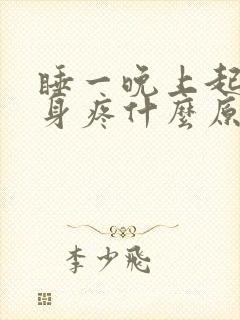 睡一晚上起
身疼什麼原
李少飛